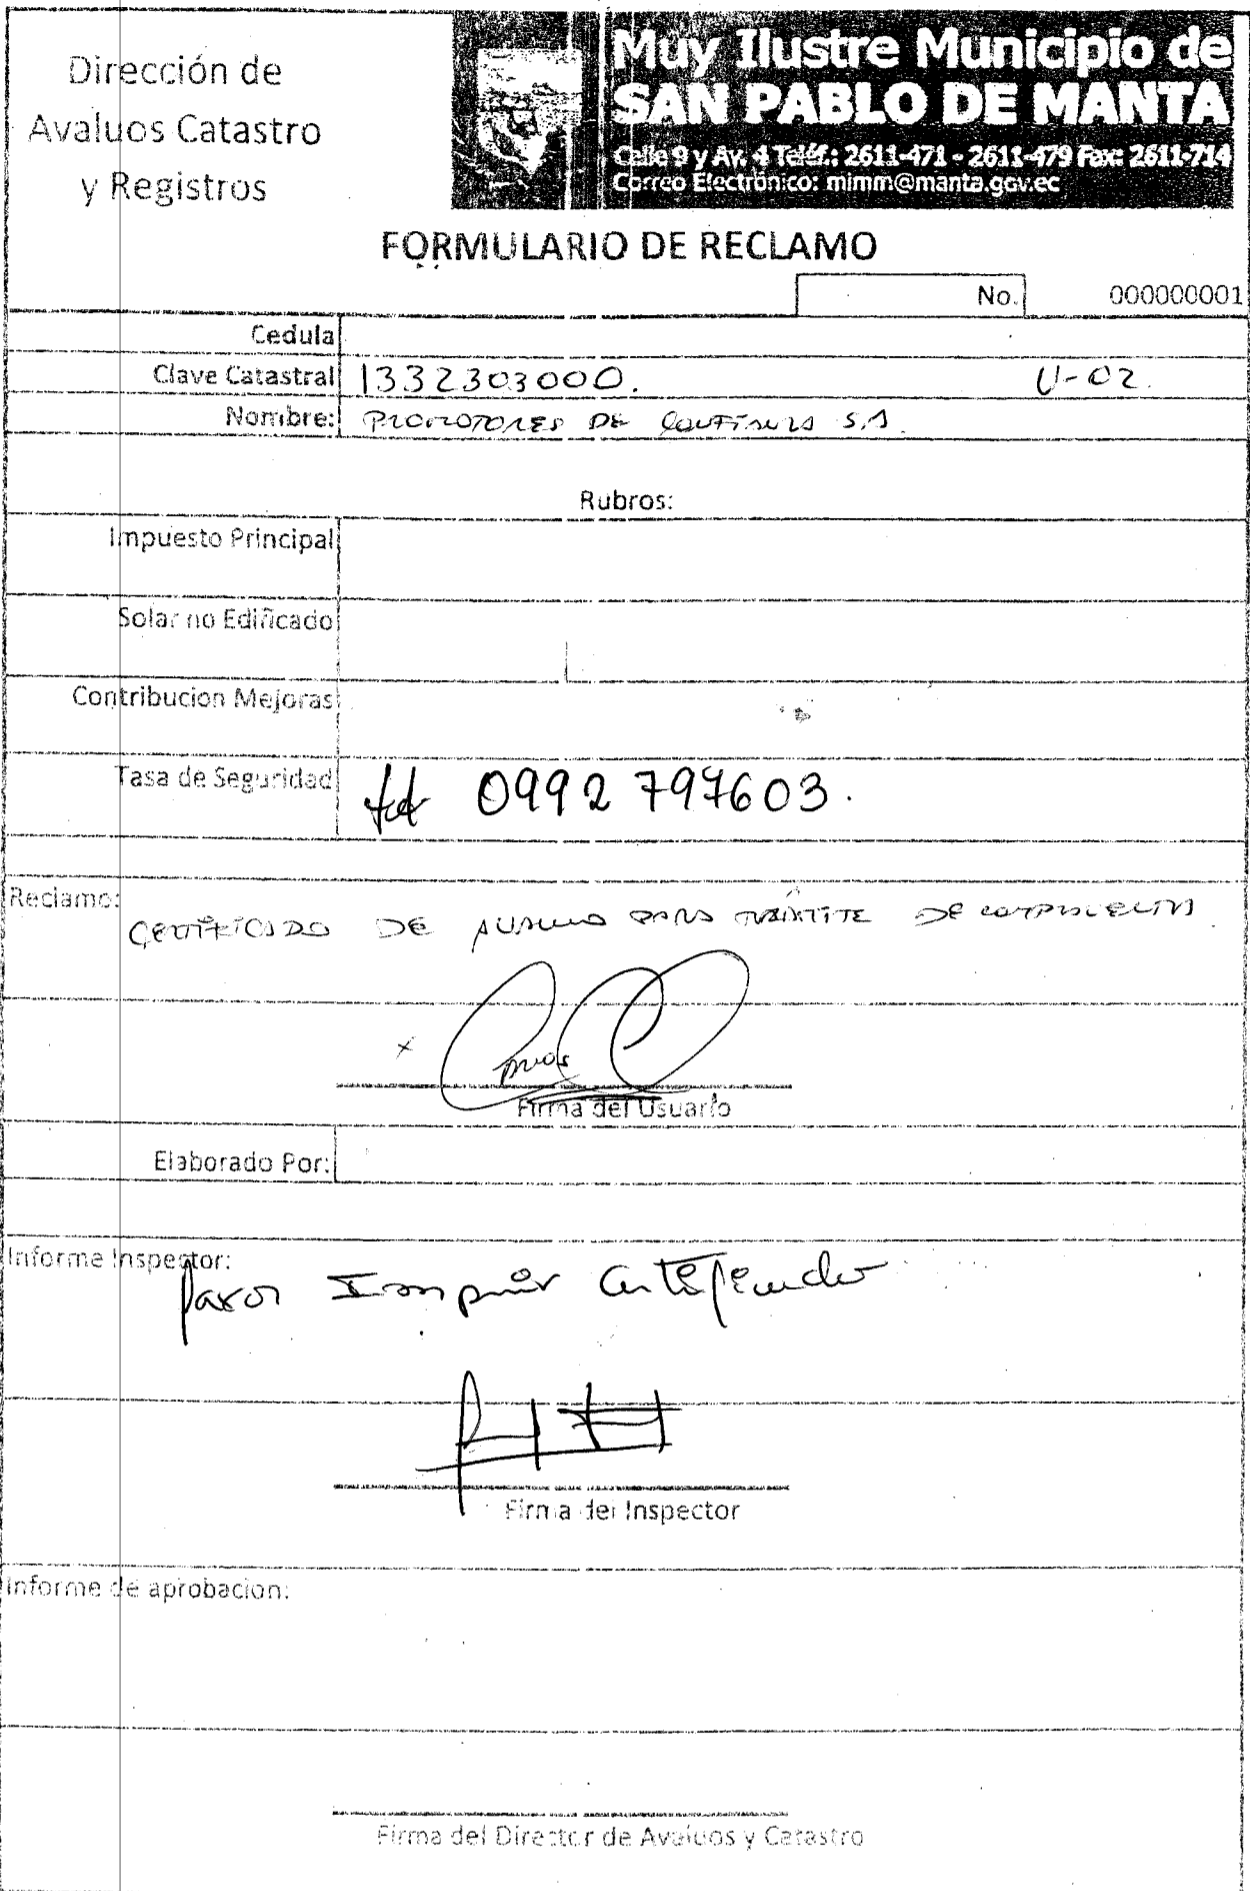 Dirección de
Avaluos Catastro
y Registros
Muy Ilustre Municipio de
SAN PABLO DE MANTA
Calle 9 y Av. 4 Teléf.: 2611-471 - 2611-479 Fax: 2611-714
Correo Electrónico: mimm@manta.gov.ec
FORMULARIO DE RECLAMO
No. 000000001
Cedula
Clave Catastral 1332303000. U-02.
Nombre: PROMOTORES DE S.A.
Rubros:
Impuesto Principal
Solar no Edificado
Contribucion Mejoras
Tasa de Seguridad
tel 0992797603.
Reclamo:
CERTIFICADO DE AVALUO PARA TRÁMITE DE COMPRAVENTA
Firma del Usuario
Elaborado Por:
Informe Inspector:
favor Imprimir Certificado
Firma del Inspector
Informe de aprobacion:
Firma del Director de Avaluos y Catastro